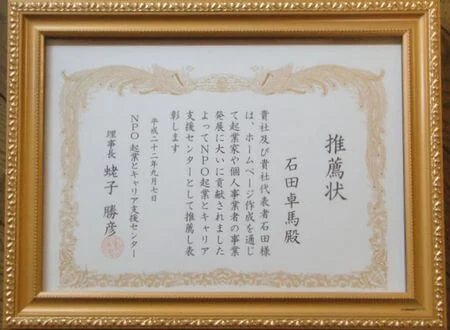 推薦状
石田卓馬殿
貴社及び貴社代表者石田様
は、ホームページ作成を通じ
て起業家や個人事業者の事業
発展に大いに貢献されました
よってNPO起業とキャリア
支援センターとして推薦し表
彰します
平成二十二年九月七日
NPO 起業とキャリア支援センター
理事長 蛯子 勝彦